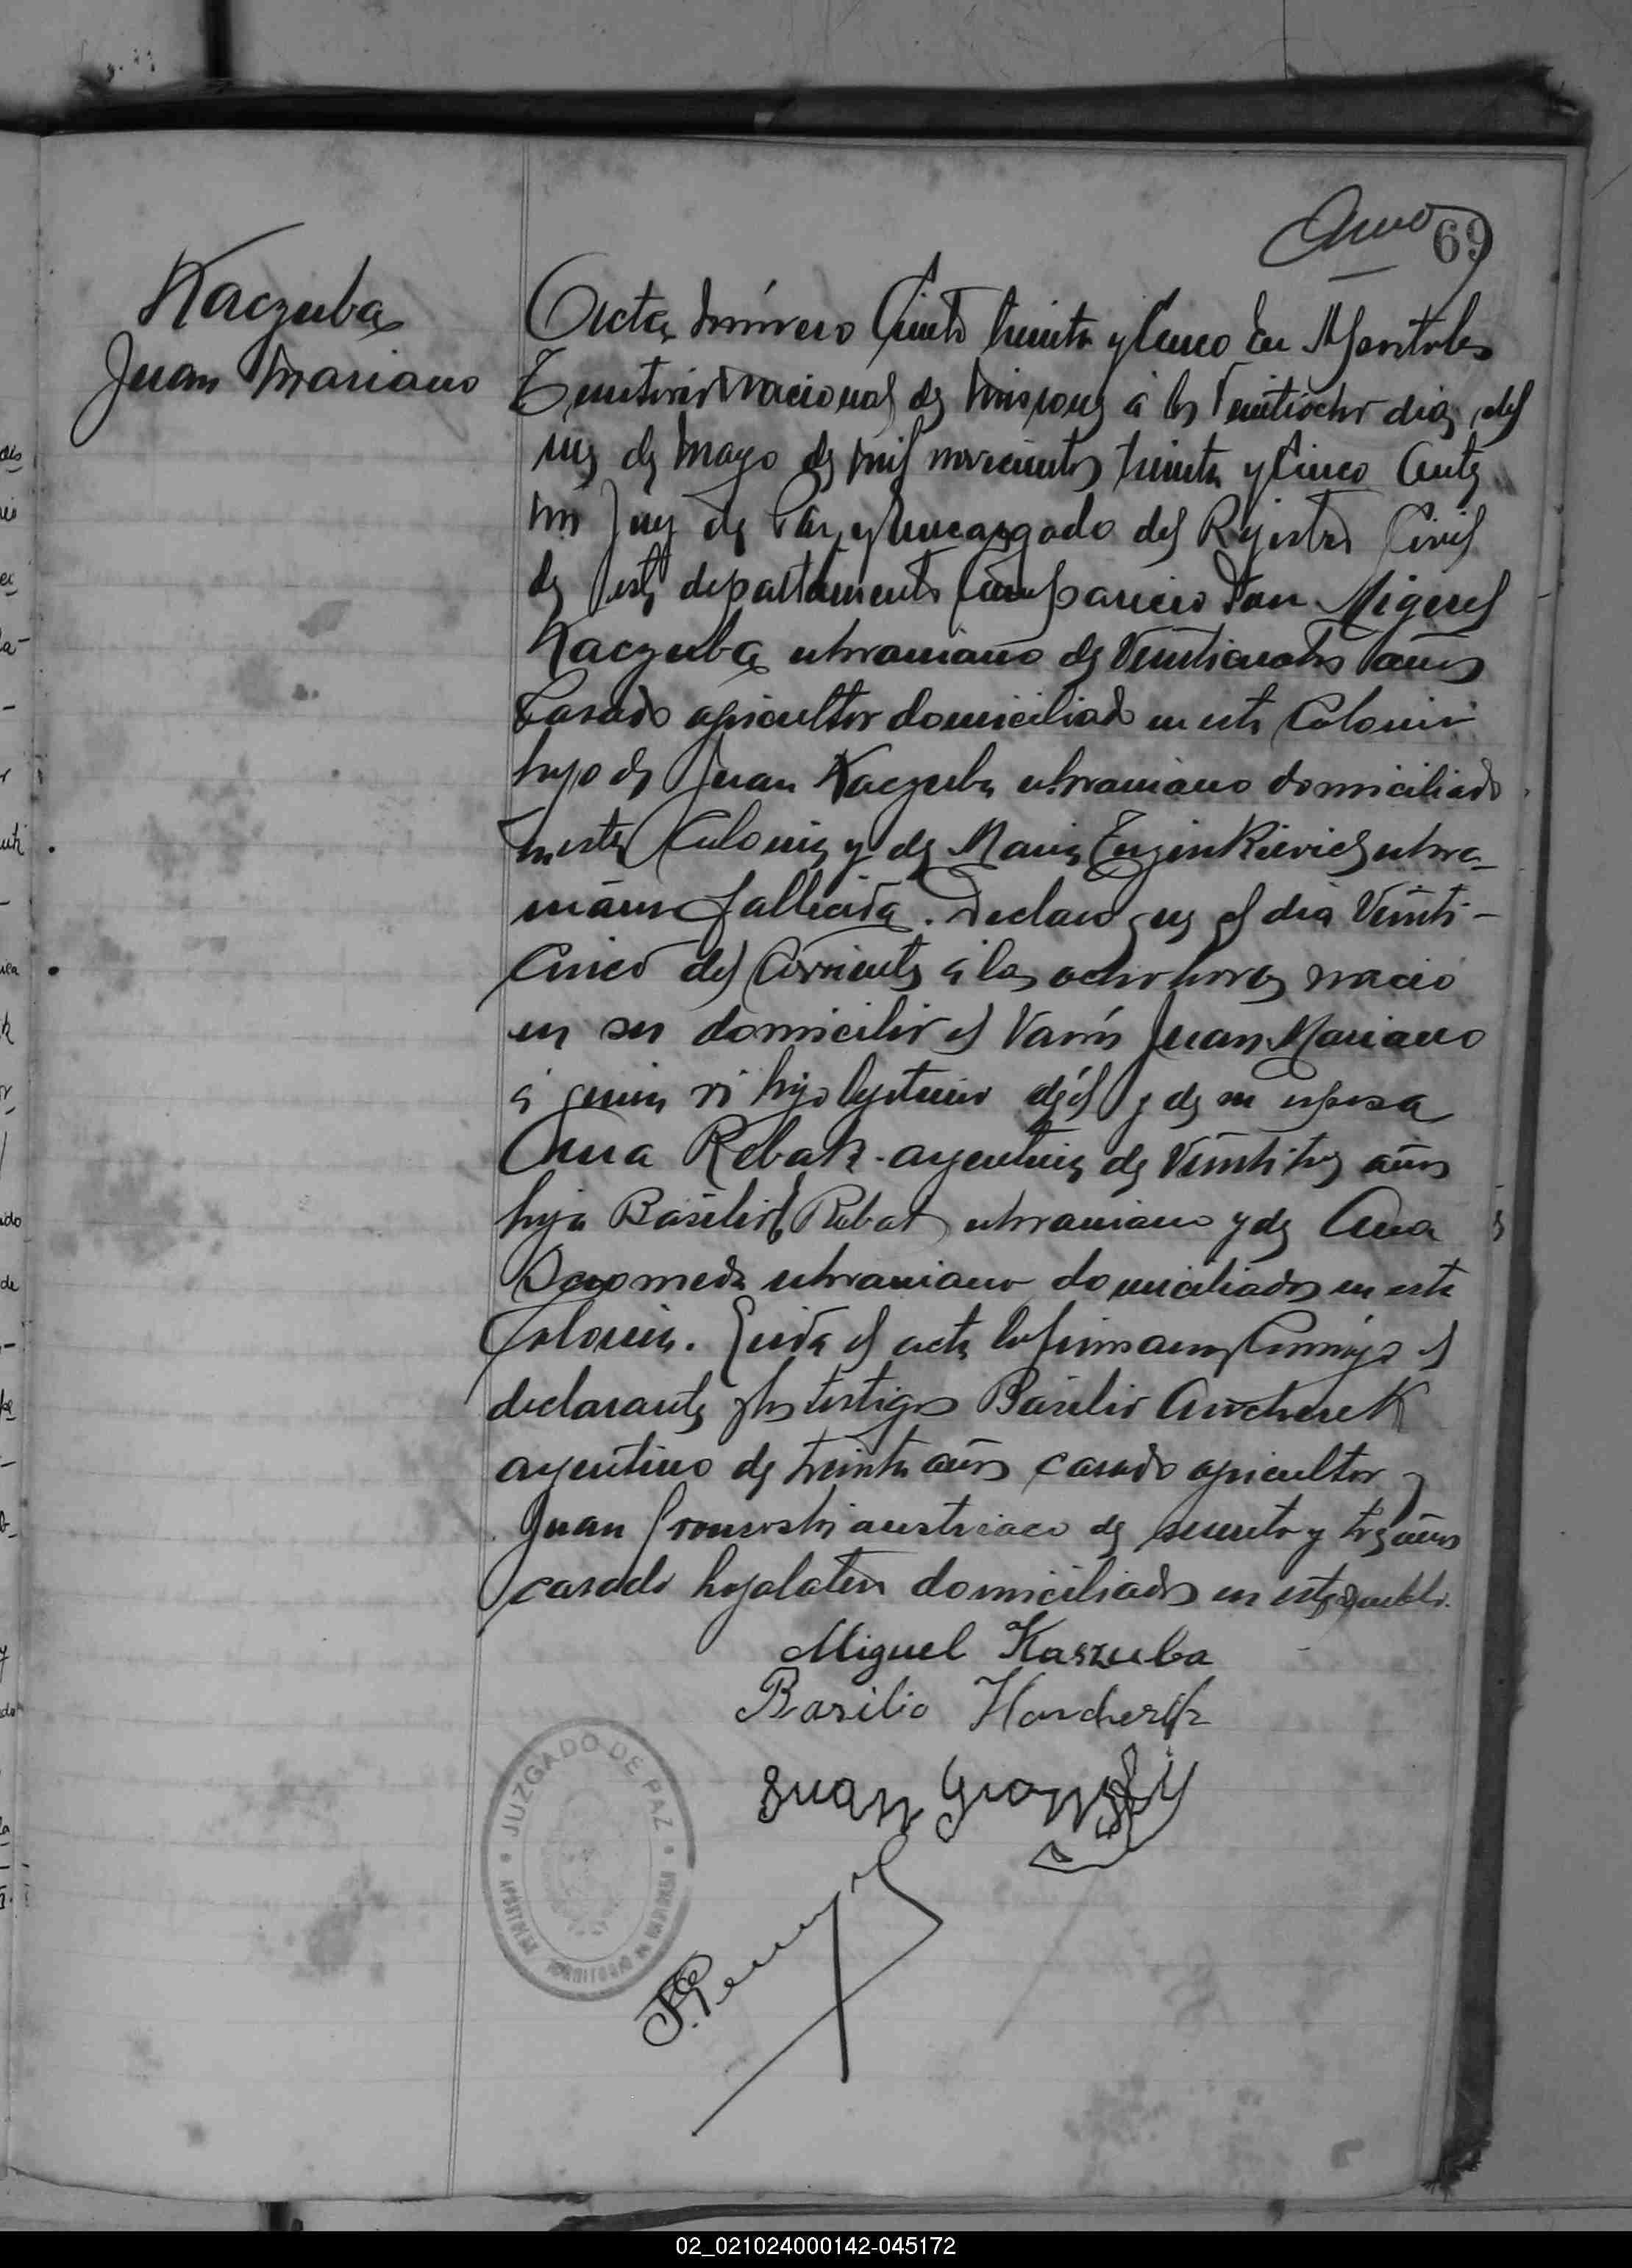 69
Kaczuba
Juan Mariano
Acta número Ciento treinta y Cinco En Apostoles
Territorio Nacional de Misiones á los Veintiocho dias del
mes de Mayo de mil novecientos treinta y Cinco Ante
mi Juez de Paz y Encargado del Rejistro Civil
de este departamento Compareció Don Miguel
Kaczuba ukraniano de Veinticuatro años
Casado agricultor domiciliado en esta Colonia
hijo de Juan Kaczuba ukraniano domiciliado
en esta Colonia y de Maria ukra-
niana fallecida. Declaró que el dia Veinti-
Cinco del Corriente á las ocho horas nació
en su domicilio el Varón Juan Mariano
á quien es hijo lejitimo de él y de su esposa
Ana Rebak argentina de Veintitres años
hija Basilio Rebak ukraniano y de Ana
ukraniano domiciliados en esta
Colonia. Leida el acta la firmaron Conmigo el
declarante y los testigos Basilio
argentino de treinta años casado agricultor y
Juan austriaco de sesenta y tres años
casado hojalatero domiciliados en este pueblo.
Miguel Kaszuba
Basilio
Juan
JUZGADO DE PAZ
APOSTOLES TERRITORIO DE MISIONES
02_021024000142-045172